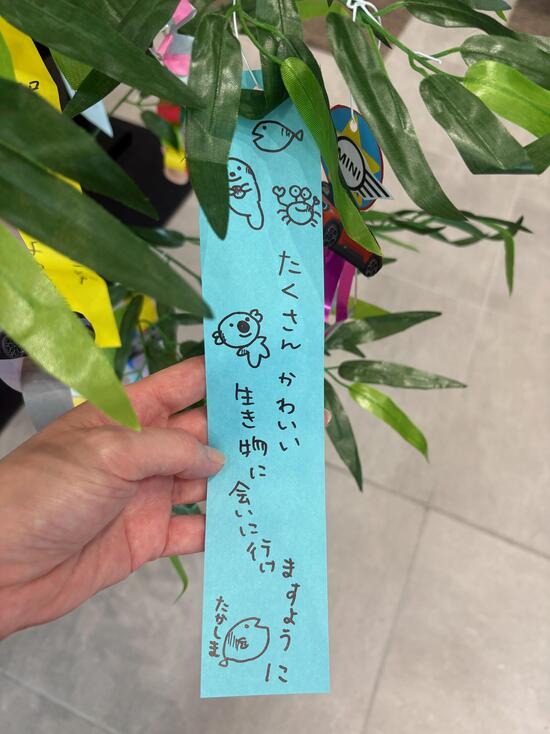 たくさん かわいい
生き物に
会いに行け
ますように
たかしま
MINI